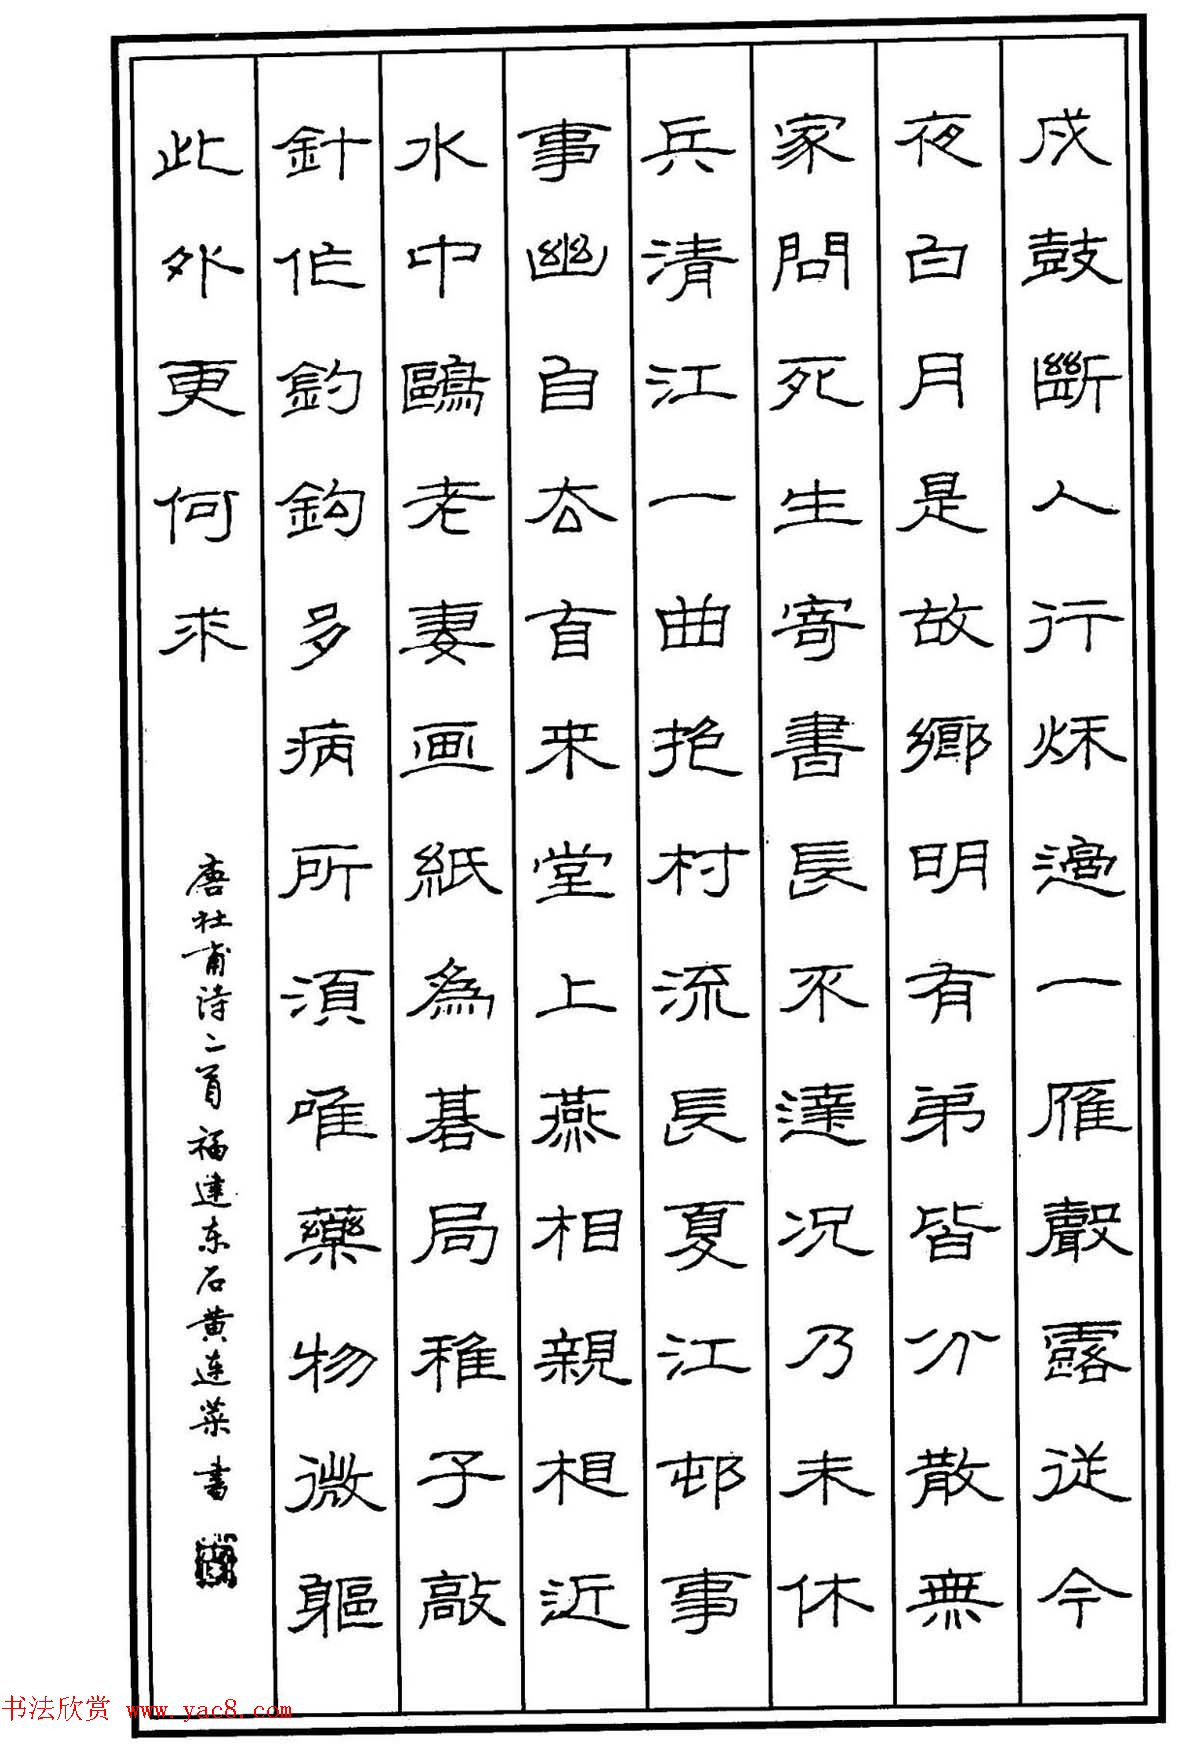 戍鼓斷人行秌邉一雁聲露從今
夜白月是故鄉明有弟皆分散無
家問死生寄書長不達况乃未休
兵清江一曲抱村流長夏江邨事
事幽自去自来堂上燕相親相近
水中鷗老妻画紙為碁局稚子敲
針作釣鈎多病所須唯藥物微軀
此外更何求
唐杜甫诗二首福建东石黄连菜书
书法欣赏 www.yac8.com